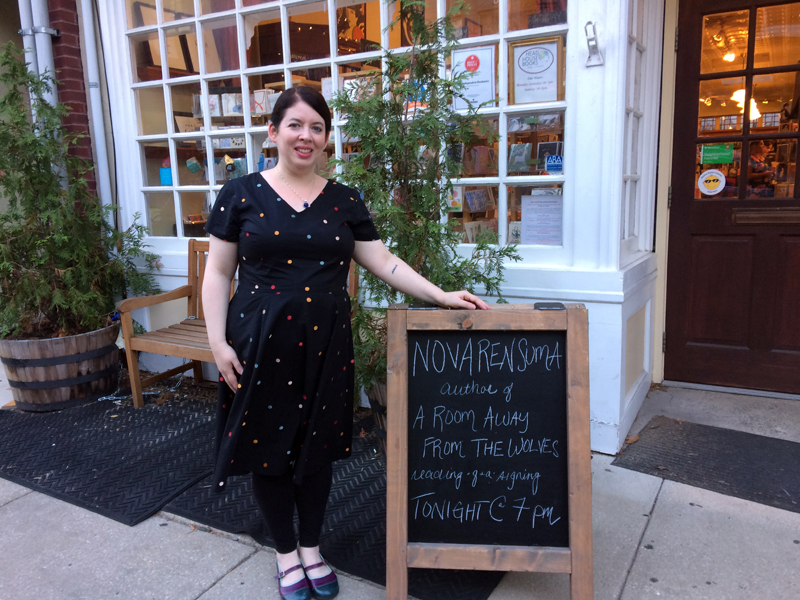 HEAD
HOUSE
BOOKS
NOVA REN SUMA
author of
A ROOM AWAY
FROM THE WOLVES
reading · q+a · signing
TONIGHT @ 7pm